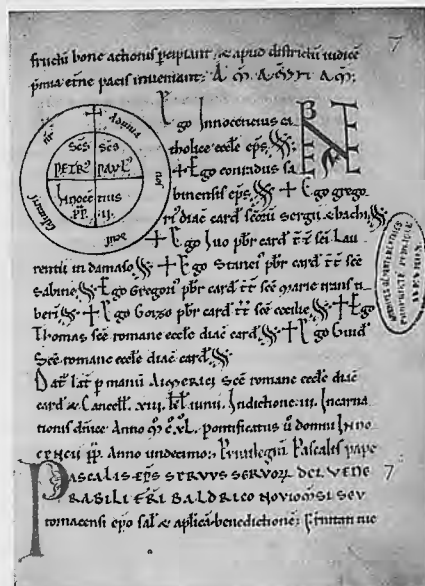 7
fructū bone actionis p̄cipiant; & apud districtū iudicē
p̄mia et̄ne pacis inveniant; A M̄. A M̄ N A M̄;
Ego Innocencius ca
tholice eccl̄e ep̄s
+ Ego conradus sa
BENE
SC̄S SC̄S
PETR' PAVL'
Innocē tius
PP. II.
binensis ep̄s + Ego grego
ri' diac̄ card scōꝝ sergii & bachi
+ Ego Iuo pb̄r card t̄t̄ sc̄i Lau
rentii in damaso + Ego Stanci' pb̄r card t̄t̄ sc̄e
sabine Ego Gregori' pb̄r card t̄t̄ sc̄e marie trans ti
beri + Ego Goizo pb̄r card t̄t̄ sc̄e cecilie + Ego
Thomas sc̄e romane eccl̄e diac̄ card + Ego Guid'
Sc̄e romane eccl̄e diac̄ card
Dat̄ Lat̄ p manū AIMERICI Sc̄e romane eccl̄e diac̄
card & Cancell. xiii. kl̄ iunii. Indictione iii. Incarna
tionis dn̄ice Anno M̄ C̄ XL. pontificatus ū domni INNO
CENCII PP. Anno undecimo; Privilegiū Pascalis pape
PASCALIS EPS SERVVS SERVOꝝ DEI VENE 7
RABILI FRI BALDRICO NOVIOM̄SI SEV
tornacensi ep̄o sal̄ & aplicā benedictionē;
PROPRIÉTÉ PUBLIQUE